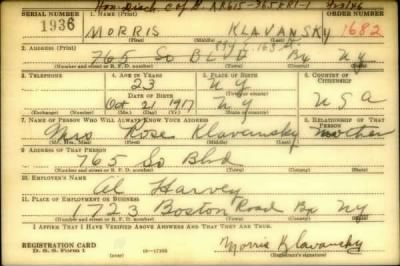 Hon. Disch.
SERIAL NUMBER 1. NAME (Print) ORDER NUMBER
1936 MORRIS KLAVANSKY 1682
(First) (Middle) (Last)
2. ADDRESS (Print)
765 SO BLVD Bx NY
(Number and street or R. F. D. number) (Town) (County) (State)
3. TELEPHONE 4. AGE IN YEARS 5. PLACE OF BIRTH 6. COUNTRY OF CITIZENSHIP
23 NY
DATE OF BIRTH
Oct 21 1917 NY USA
(Exchange) (Number) (Mo.) (Day) (Yr.) (State or country)
7. NAME OF PERSON WHO WILL ALWAYS KNOW YOUR ADDRESS 8. RELATIONSHIP OF THAT PERSON
Mrs Rose Klavansky mother
(Mr., Mrs., Miss) (First) (Middle) (Last)
9. ADDRESS OF THAT PERSON
765 So Blvd
(Number and street or R. F. D. number) (Town) (County) (State)
10. EMPLOYER'S NAME
Al Harvey
11. PLACE OF EMPLOYMENT OR BUSINESS
1723 Boston Road Bx NY
(Number and street or R. F. D. number) (Town) (County) (State)
I AFFIRM THAT I HAVE VERIFIED ABOVE ANSWERS AND THAT THEY ARE TRUE.
REGISTRATION CARD
D. S. S. Form 1 (over) Morris Klavansky
(Registrant's signature)